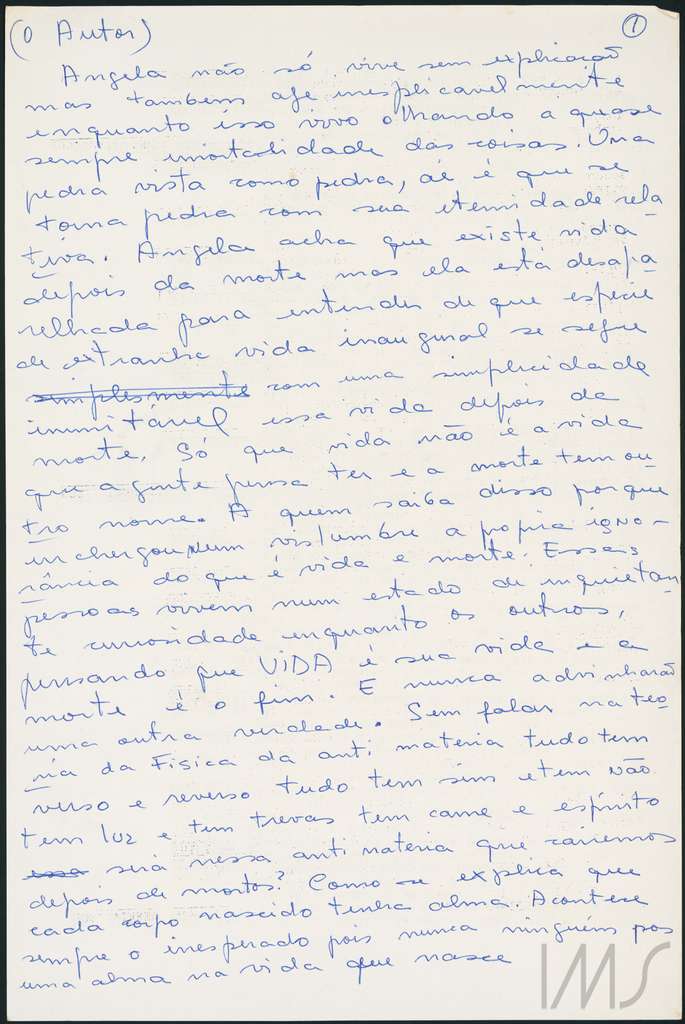 (O Autor) 1
Angela não só vive sem explicação
mas tambem age inesplicavelmente
enquanto isso vivo olhando a quase
sempre imortalidade das coisas. Uma
pedra vista como pedra, aí é que se
torna pedra com sua eternidade rela
tiva. Angela acha que existe vida
depois da morte mas ela está desapa
relhada para entender de que espécie
de extranha vida inaugural se segue
simplesmente com uma simplicidade
inimitável essa vida depois da
morte. Só que vida não é a vida
que a gente pensa ter e a morte tem ou
tro nome. A quem saiba disso porque
inchergou num vislumbre a propria igno-
rância do que é vida e morte. Essas
pessoas vivem num estado de inquietan
te curiosidade enquanto os outros,
pensando que VIDA é sua vida e a
morte é o fim. E nunca advinharão
uma outra verdade. Sem falar na teo
ria da Fisica da anti materia tudo tem
verso e reverso tudo tem sim e tem não
tem luz e tem trevas tem carne e espírito
essa será nessa anti materia que cairemos
depois de mortos? Como se explica que
cada corpo nascido tenha alma. Acontece
sempre o inesperado pois nunca ninguém pos
uma alma na vida que nasce
IMS